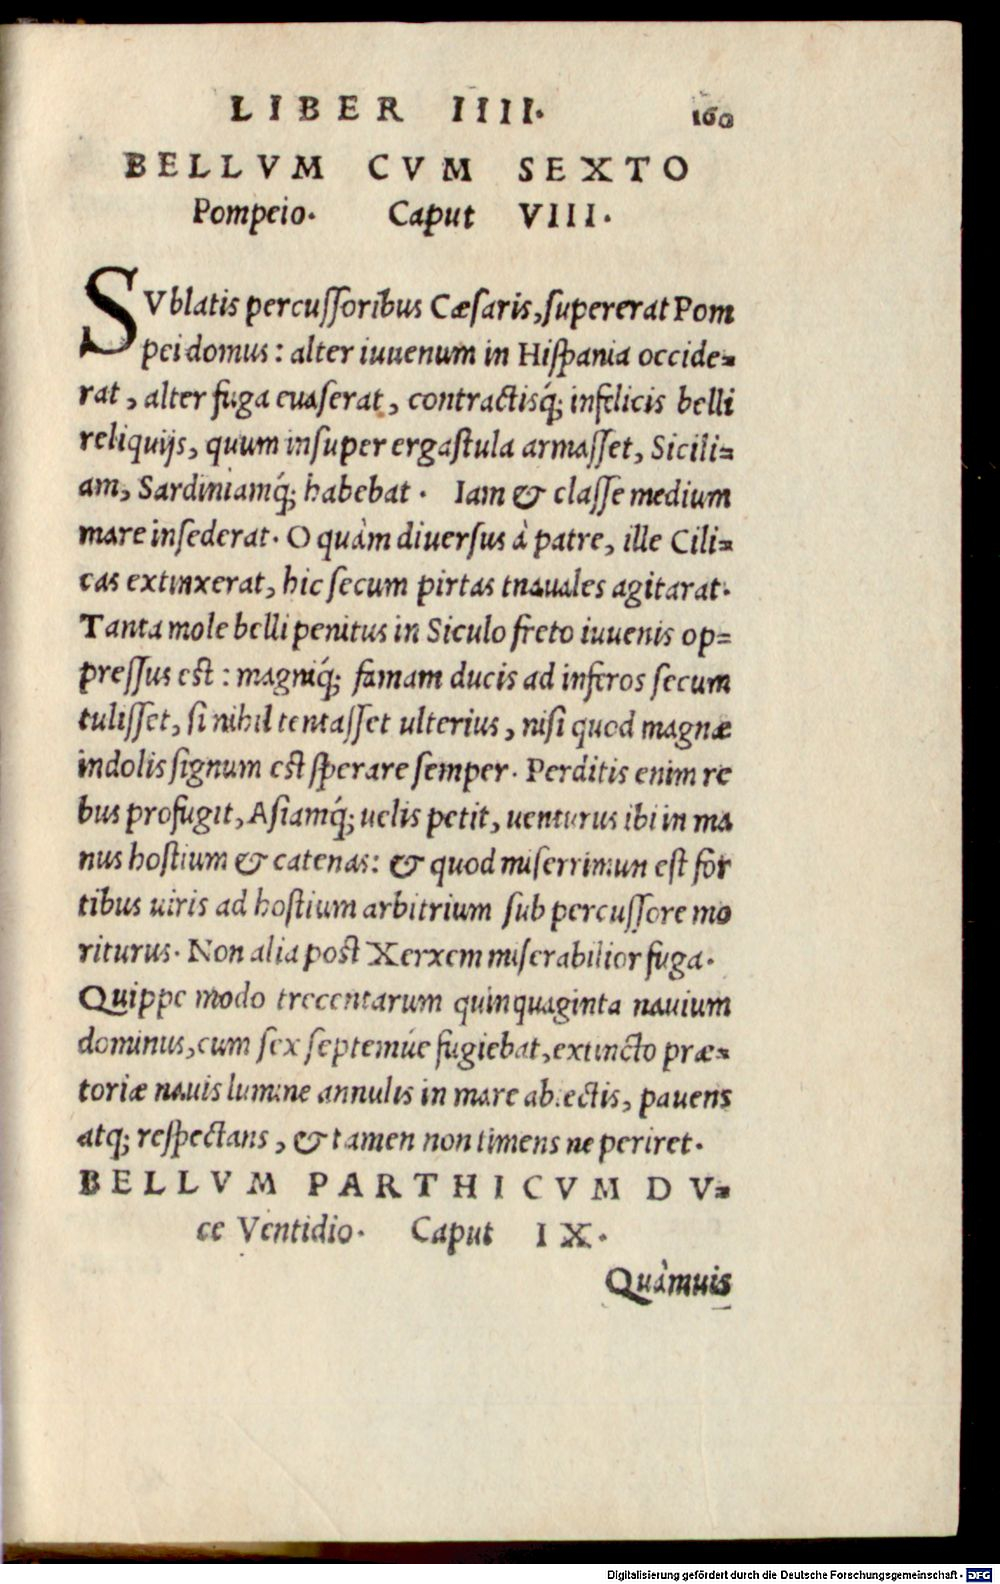 LIBER IIII. 160
BELLVM CVM SEXTO
Pompeio. Caput VIII.
SVblatis percuſſoribus Cæſaris, ſupererat Pom
pei domus: alter iuuenum in Hiſpania occide=
rat, alter fuga euaſerat, contractisq́; infelicis belli
reliquijs, quum inſuper ergaſtula armaſſet, Sicili=
am, Sardiniamq́; habebat. Iam & claſſe medium
mare inſederat. O quàm diuerſus à patre, ille Cili=
cas extinxerat, hic ſecum pirtas tnauales agitarat.
Tanta mole belli penitus in Siculo freto iuuenis op=
preſſus eſt: magniq́; famam ducis ad inferos ſecum
tuliſſet, ſi nihil tentaſſet ulterius, niſi quod magnæ
indolis ſignum eſt ſperare ſemper. Perditis enim re
bus profugit, Aſiamq́; uelis petit, uenturus ibi in ma
nus hoſtium & catenas: & quod miſerrimun eſt for
tibus uiris ad hoſtium arbitrium ſub percuſſore mo
riturus. Non alia poſt Xerxem miſerabilior fuga.
Quippe modo trecentarum quinquaginta nauium
dominus, cum ſex ſeptemúe fugiebat, extincto præ=
toriæ nauis lumine annulis in mare abiectis, pauens
atq; reſpectans, & tamen non timens ne periret.
BELLVM PARTHICVM DV=
ce Ventidio. Caput IX.
Quàmuis
Digitalisierung gefördert durch die Deutsche Forschungsgemeinschaft - DFG